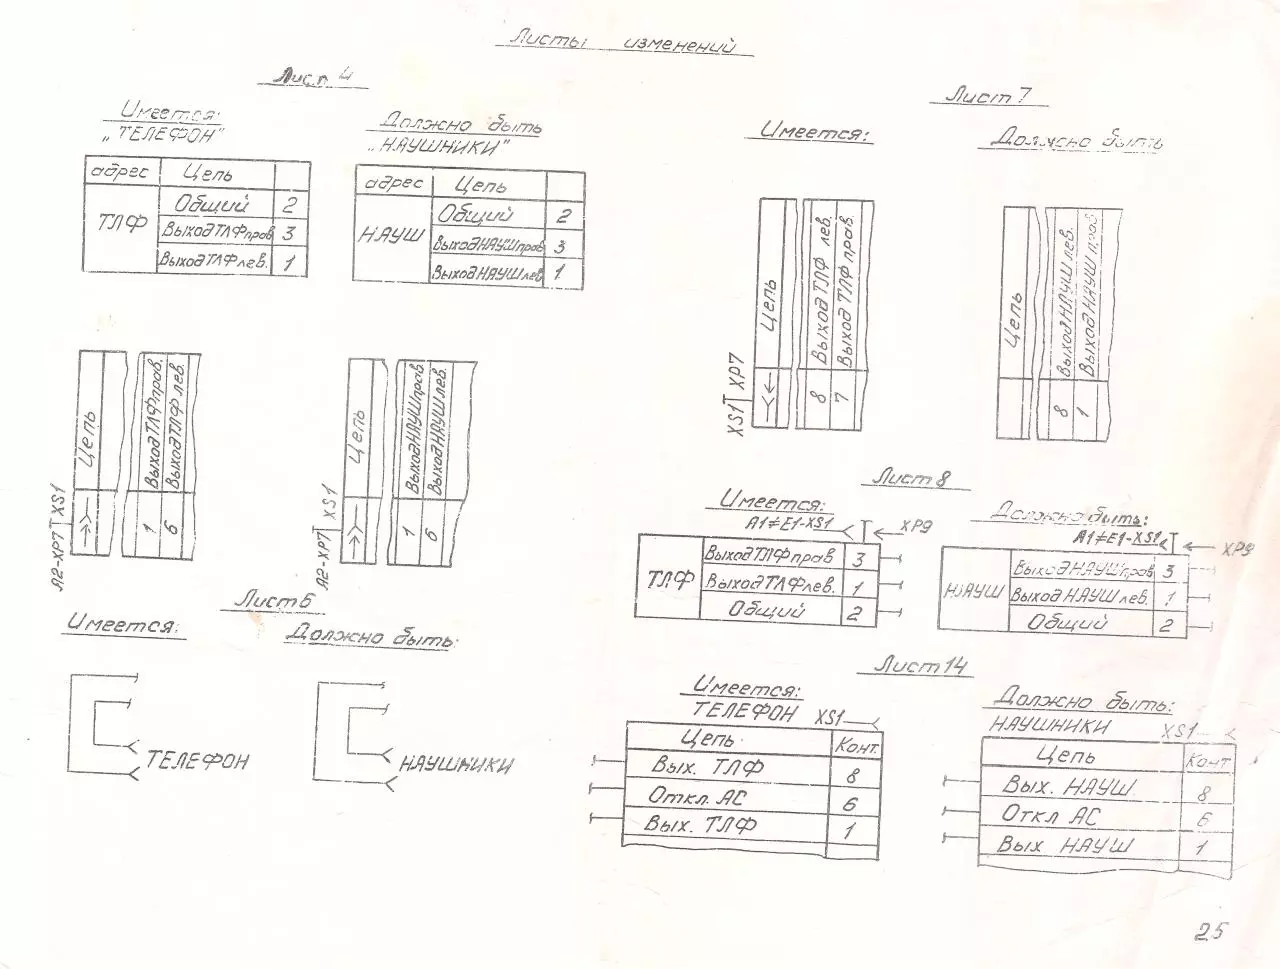 Листы изменений
Лист 4
Имеется:
„ТЕЛЕФОН"
адрес Цепь
ТЛФ
Общий 2
Выход ТЛФ прав 3
Выход ТЛФ лев. 1
Должно быть
„НАУШНИКИ"
адрес Цепь
НАУШ
Общий 2
Выход НАУШ прав 3
Выход НАУШ лев 1
А2-ХР7 XS1
Цепь
1 Выход ТЛФ прав.
6 Выход ТЛФ лев.
А2-ХР7 XS1
Цепь
1 Выход НАУШ прав
6 Выход НАУШ лев.
Лист 6
Имеется:
ТЕЛЕФОН
Должно быть:
НАУШНИКИ
Лист 7
Имеется:
XS1 ХР7
Цепь
8 Выход ТЛФ лев.
7 Выход ТЛФ прав.
Должно быть
Цепь
8 Выход НАУШ лев.
1 Выход НАУШ прав
Лист 8
Имеется:
А1≠Е1-XS1 ХР9
ТЛФ
Выход ТЛФ прав 3
Выход ТЛФ лев. 1
Общий 2
Должно быть:
А1≠Е1-XS1 ХР9
НАУШ
Выход НАУШ прав 3
Выход НАУШ лев. 1
Общий 2
Лист 14
Имеется:
ТЕЛЕФОН XS1
Цепь Конт.
Вых. ТЛФ 8
Откл. АС 6
Вых. ТЛФ 1
Должно быть:
НАУШНИКИ XS1
Цепь Конт
Вых. НАУШ 8
Откл АС 6
Вых НАУШ 1
25